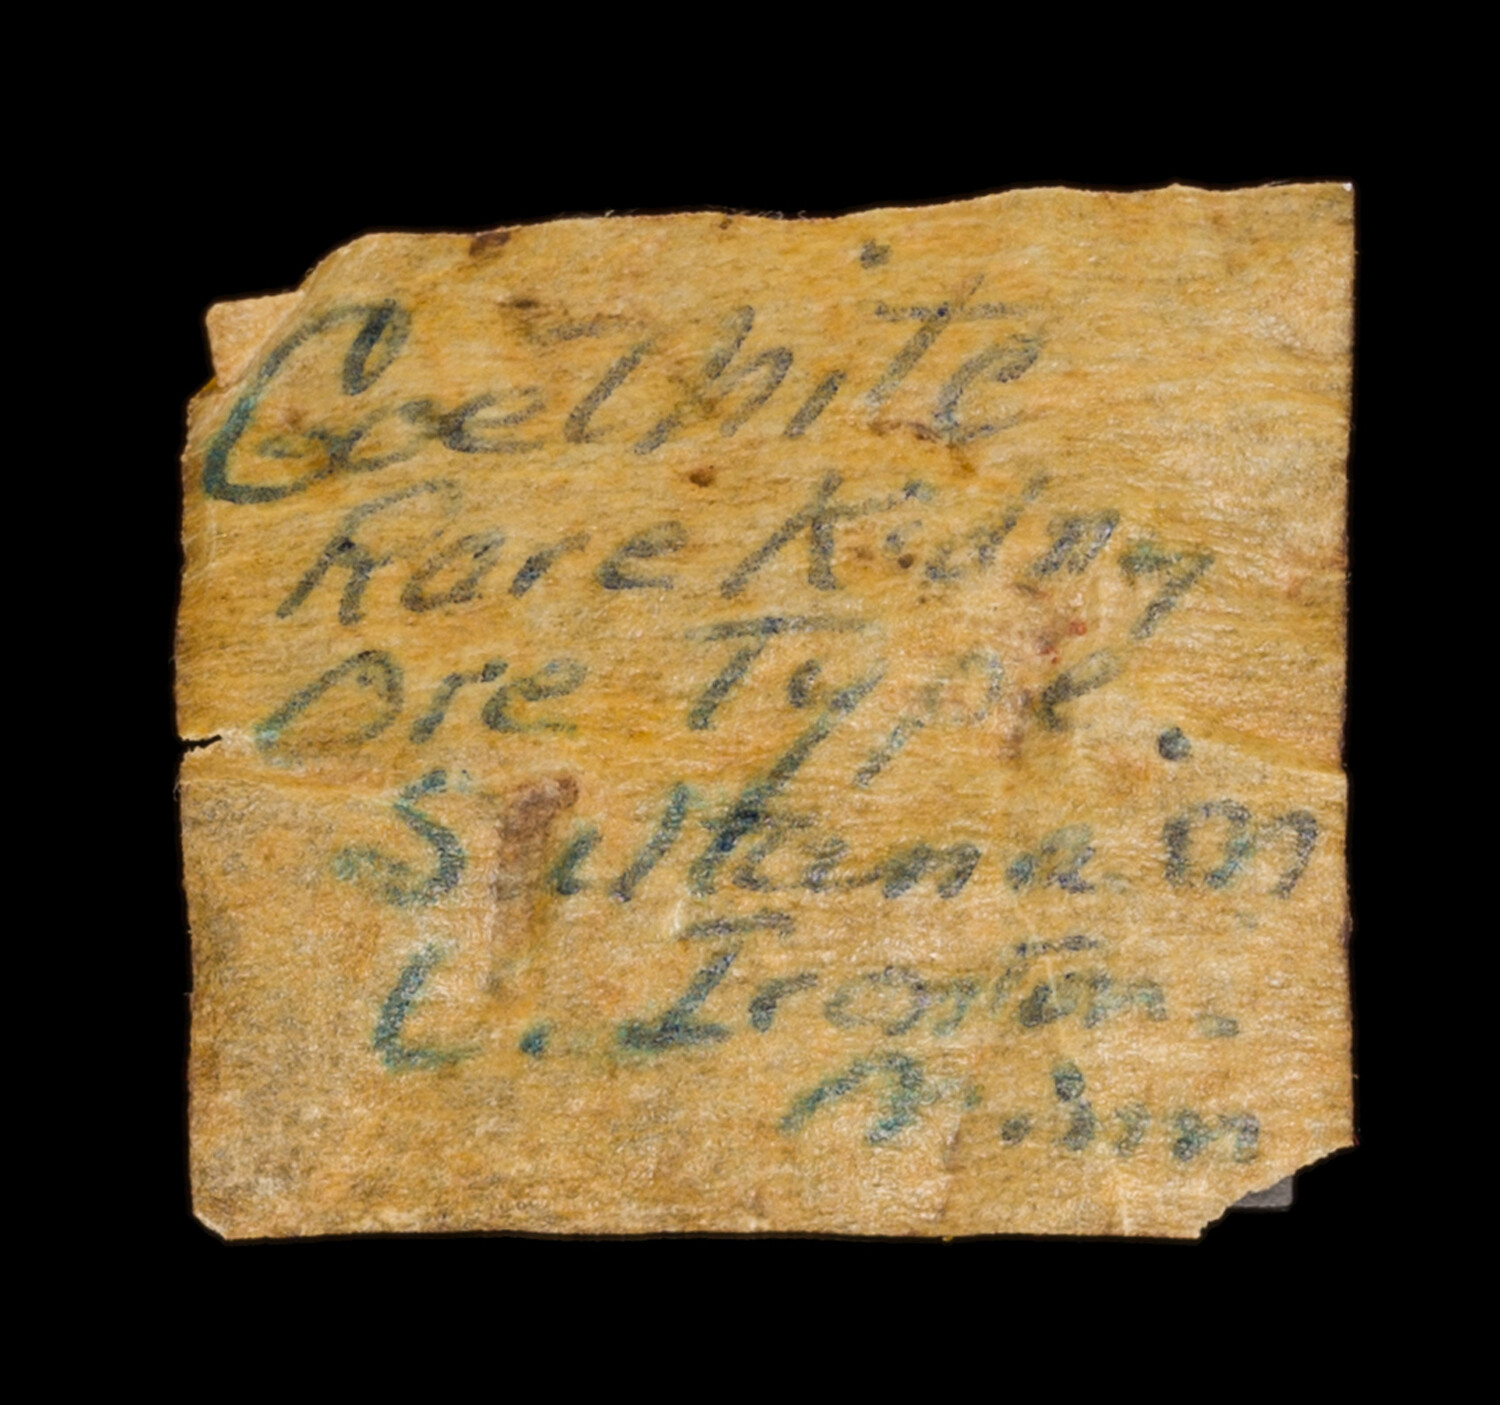 Goethite
Rare Kidny
Ore Type
Sultana in
C. Ironton.
Minn